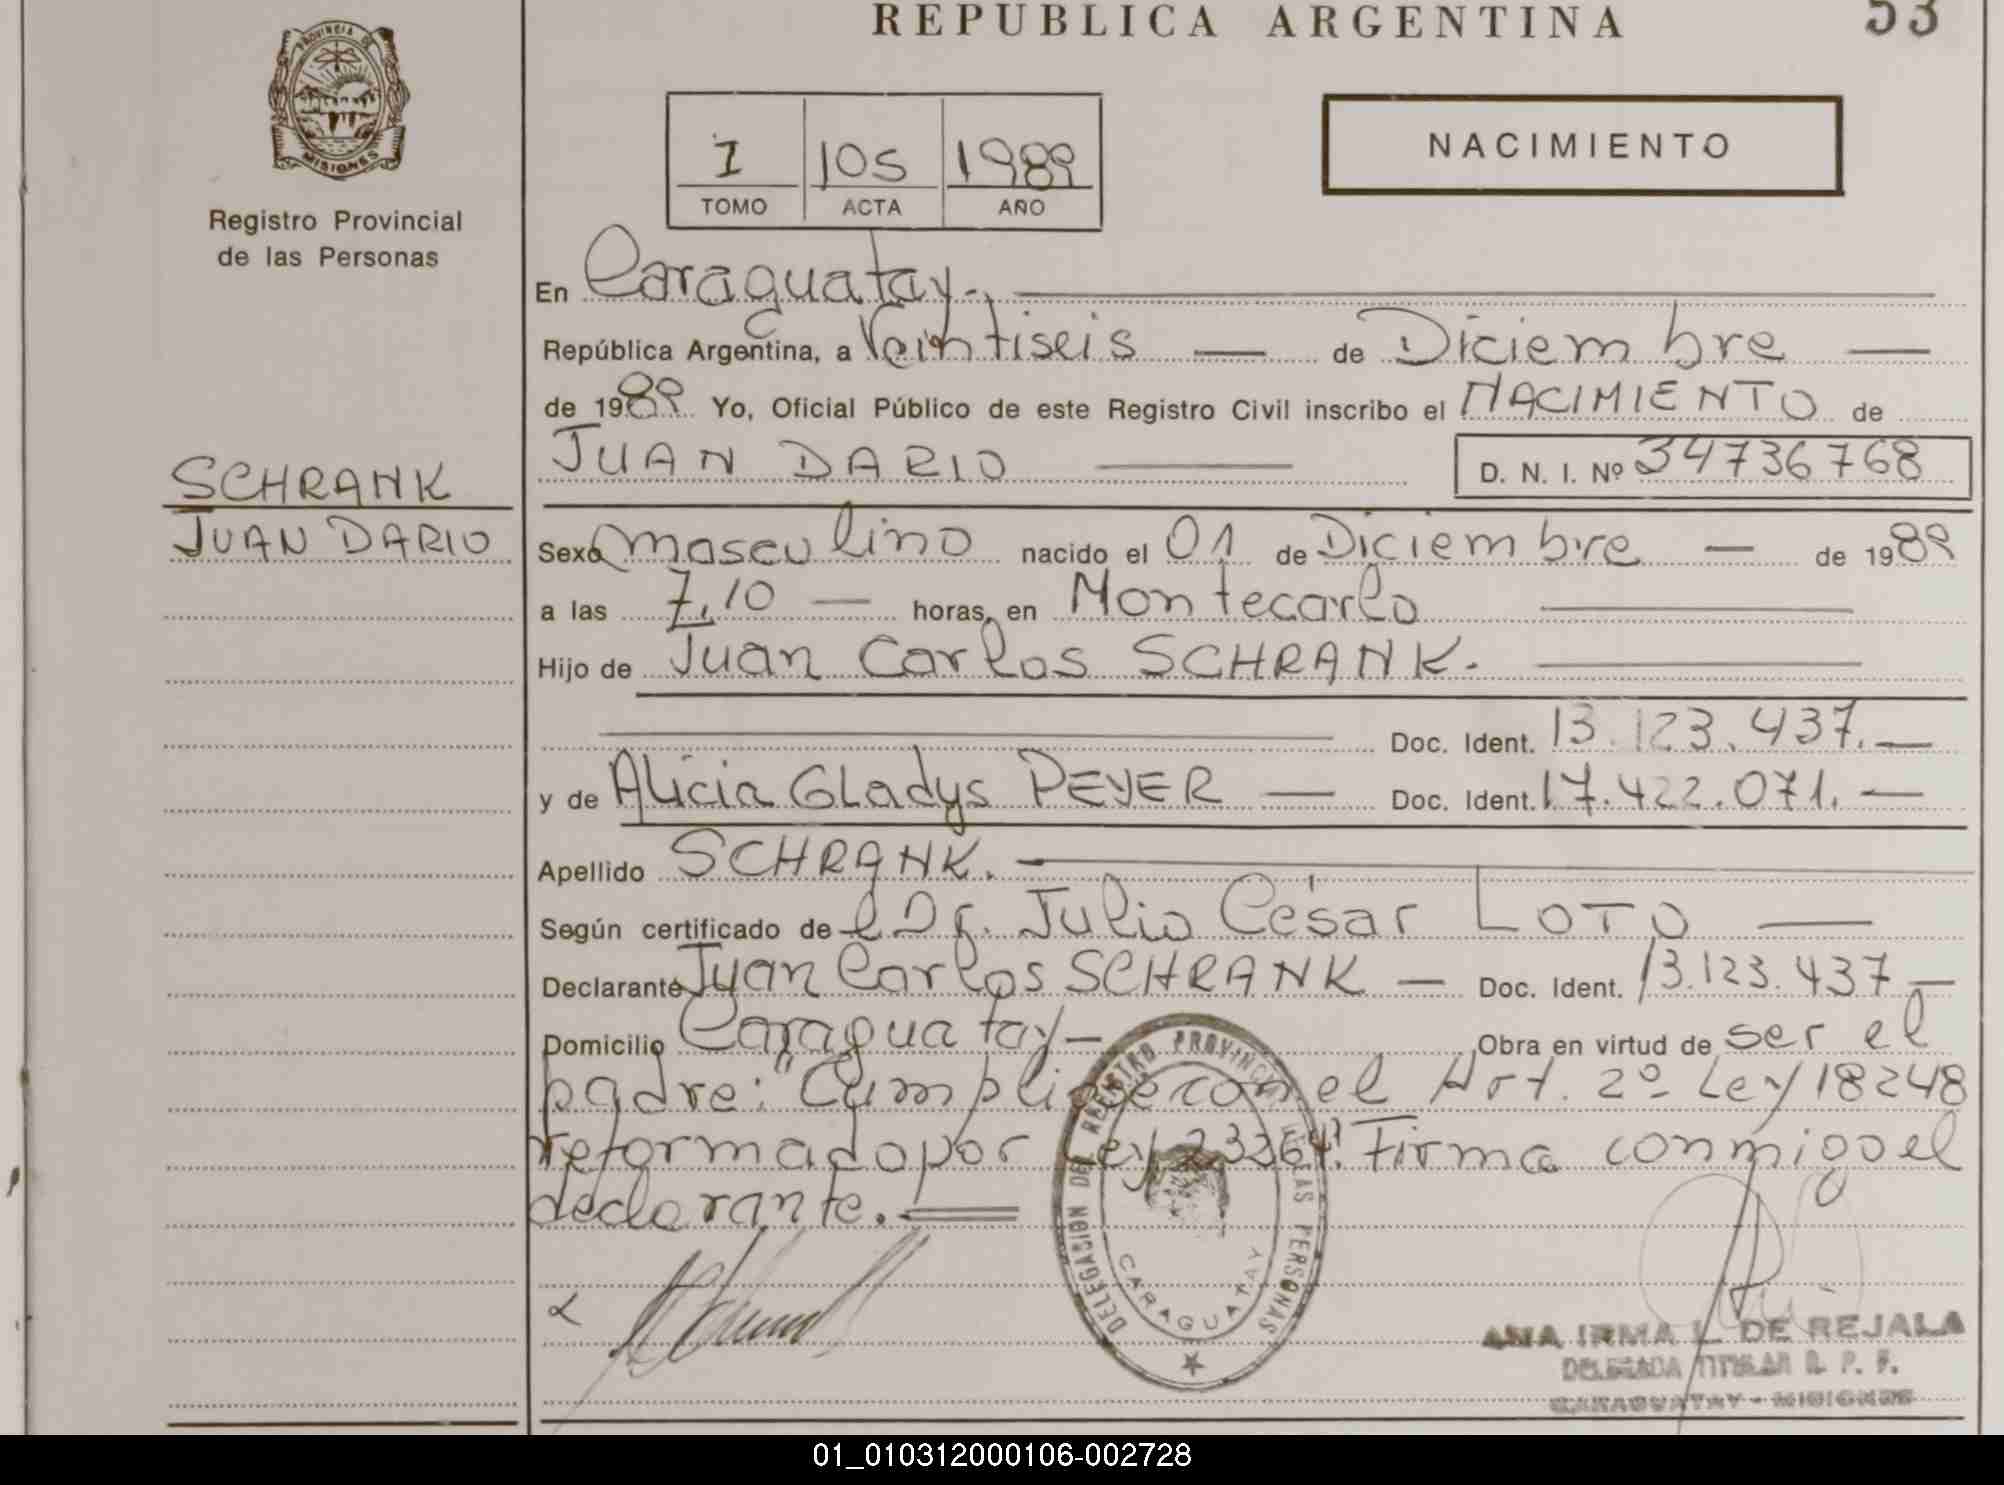 REPUBLICA ARGENTINA
53
PROVINCIA DE
MISIONES
Registro Provincial
de las Personas
I 105 1989
TOMO ACTA AÑO
NACIMIENTO
En Caraguatay.
República Argentina, a Veintiseis — de Diciembre —
de 1989 Yo, Oficial Público de este Registro Civil inscribo el NACIMIENTO de
JUAN DARIO —
D. N. I. Nº 34736768
SCHRANK
JUAN DARIO
Sexo masculino nacido el 01 de Diciembre — de 1989
a las 7,10 — horas, en Montecarlo —
Hijo de Juan Carlos SCHRANK. —
— Doc. Ident. 13.123.437. —
y de Alicia Gladys PEYER — Doc. Ident. 17.422.071. —
Apellido SCHRANK. —
Según certificado de el Dr. Julio César LOTO —
Declarante Juan Carlos SCHRANK — Doc. Ident. 13.123.437 —
Domicilio Caraguatay — Obra en virtud de ser el
padre: "Cumplise con el Art. 2º Ley 18248
reformado por Ley 23264". Firma conmigo el
declarante. =
DELEGACION DEL REGISTRO PROVINCIAL DE LAS PERSONAS
CARAGUATAY
ANA IRMA L. DE REJALA
DELEGADA TITULAR R. P. P.
CARAGUATAY - MISIONES
01_010312000106-002728